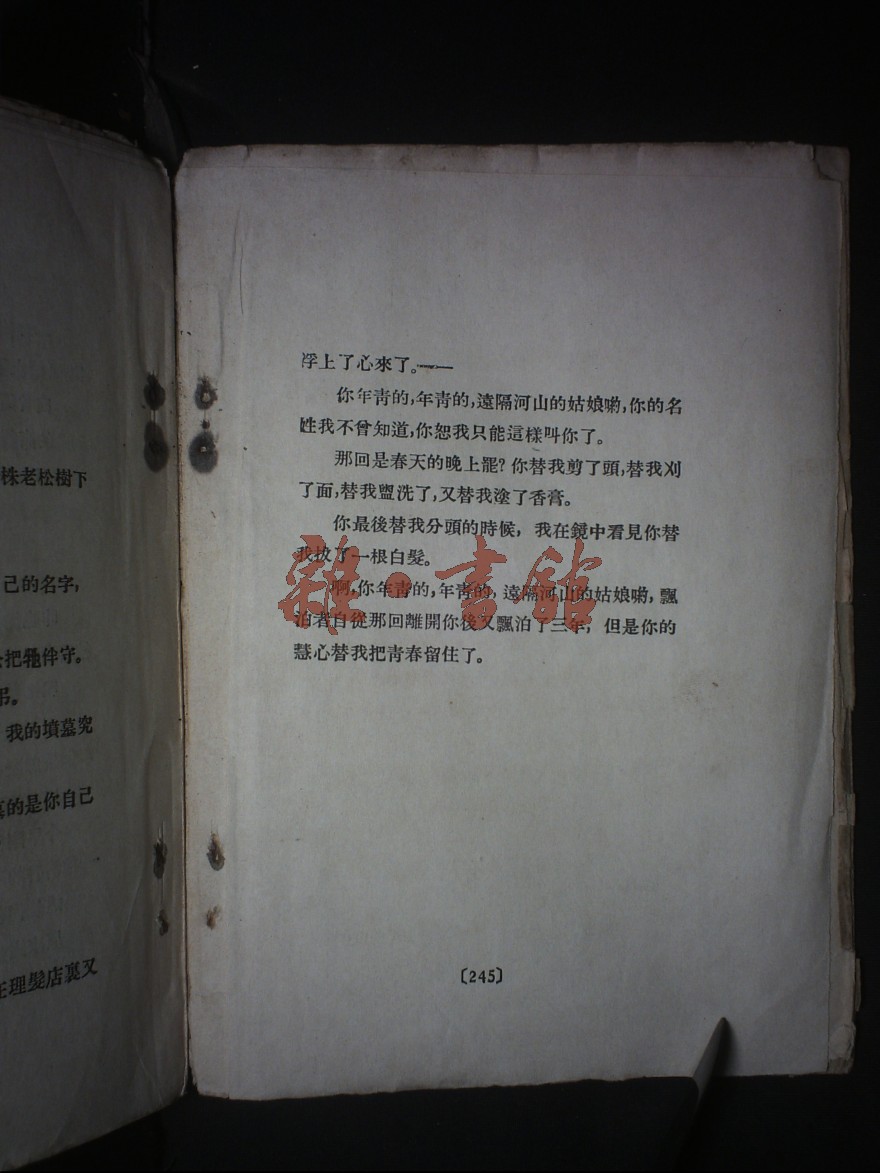 株老松樹下
己的名字,
把牠伴守。
弔。
我的墳墓究
的是你自己
理髮店裏又
浮上了心來了。——
你年靑的,年靑的,遠隔河山的姑娘喲,你的名
姓我不曾知道,你恕我只能這樣叫你了。
那回是春天的晚上罷?你替我剪了頭,替我刈
了面,替我盥洗了,又替我塗了香膏。
你最後替我分頭的時候,我在鏡中看見你替
我拔了一根白髮。
啊,你年靑的,年靑的,遠隔河山的姑娘喲,飄
泊者自從那回離開你後又飄泊了三年,但是你的
慧心替我把靑春留住了。
雜·書館
〔245〕